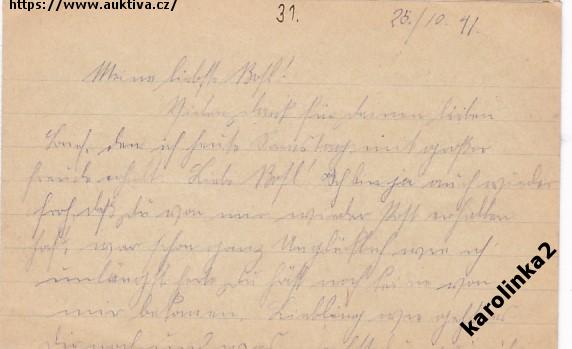 https://www.auktiva.cz/
31. 25./10. 41.
Meine liebste
Vielen dank für deinen lieben
den ich heute Samstag mit großer
freude erhielt. Liebe Ich bin ja auch wieder
froh daß du von mir wieder Post erhalten
hast, war schon ganz Unglücklich wie ich
du hätst noch keine von
mir bekomen. Liebling wie geht es
dir noch
karolinka2